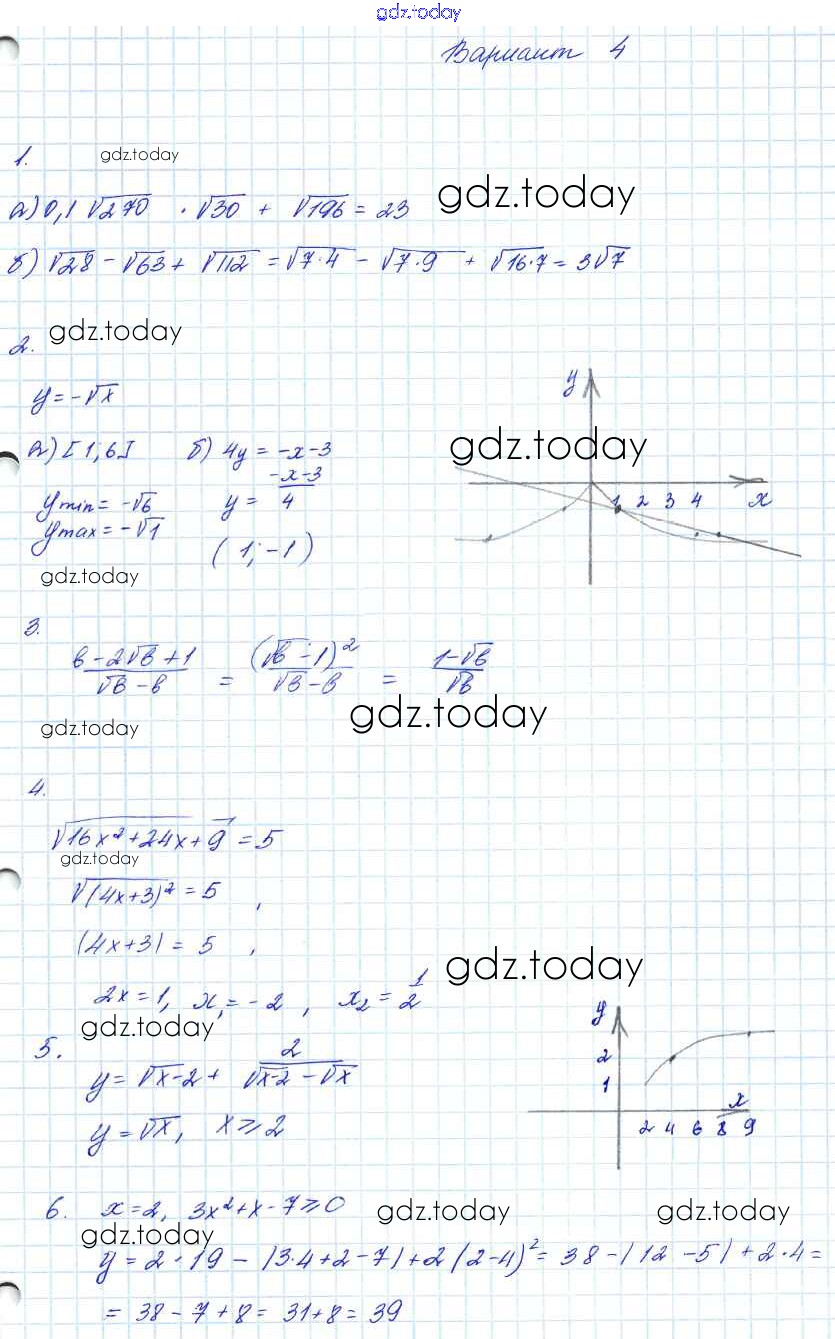 gdz.today
Вариант 4
1.
gdz.today
а) 0,1 √270 · √30 + √196 = 23
gdz.today
б) √28 - √63 + √112 = √7·4 - √7·9 + √16·7 = 3√7
gdz.today
2.
y = -√x
а) [1; 6] б) 4y = -x-3
gdz.today
y min = -√6 y = (-x-3)/4
y max = -√1
(1; -1)
y
1 2 3 4 x
gdz.today
3.
(в - 2√в + 1)/(√в - в) = (√в - 1)²/(√в - в) = (1-√в)/√в
gdz.today
gdz.today
4.
√16x² + 24x + 9 = 5
gdz.today
√(4x+3)² = 5,
|4x+3| = 5,
gdz.today
2x = 1, x₁ = -2, x₂ = 1/2
gdz.today
5.
y = √x-2 + 2/(√x-2 - √x)
y = √x, x ⩾ 2
y
2
1
x
2 4 6 8 9
6. x = 2, 3x² + x - 7 ⩾ 0
gdz.today
gdz.today
gdz.today
y = 2 · 19 - |3·4+2-7| + 2(2-4)² = 38 - |12 - 5| + 2·4 =
= 38 - 7 + 8 = 31 + 8 = 39